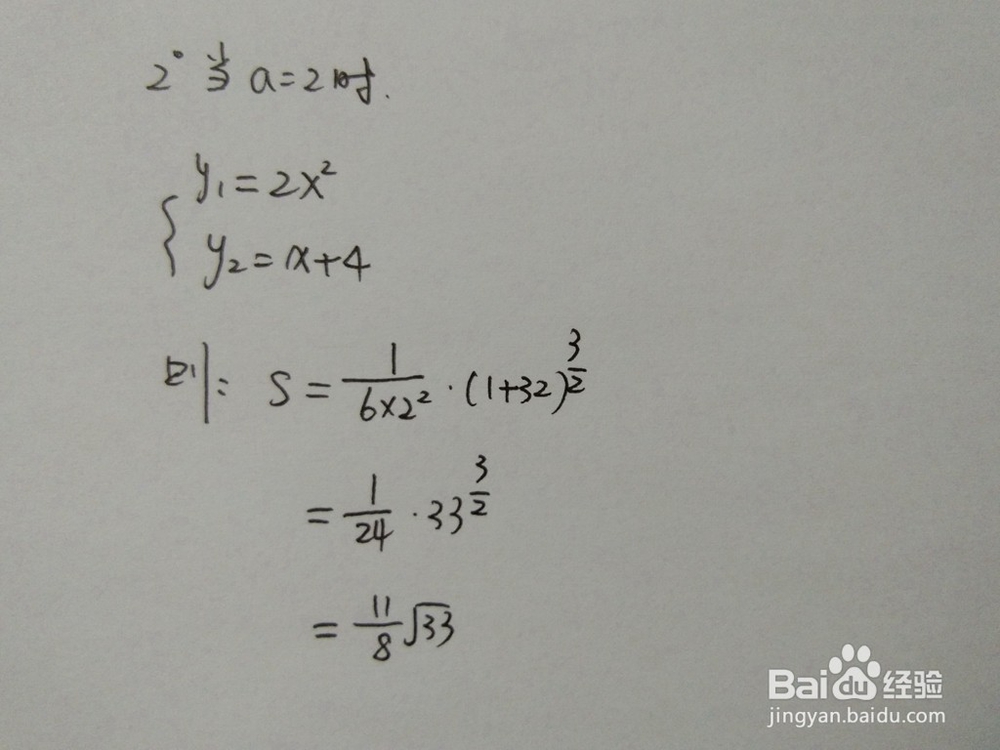 2° 当 a=2时.
{ y₁=2x²
y₂=x+4
则: S = 1/(6×2²) · (1+32)^(3/2)
= 1/24 · 33^(3/2)
= 11/8 √33
Baidu经验
jingyan.baidu.com